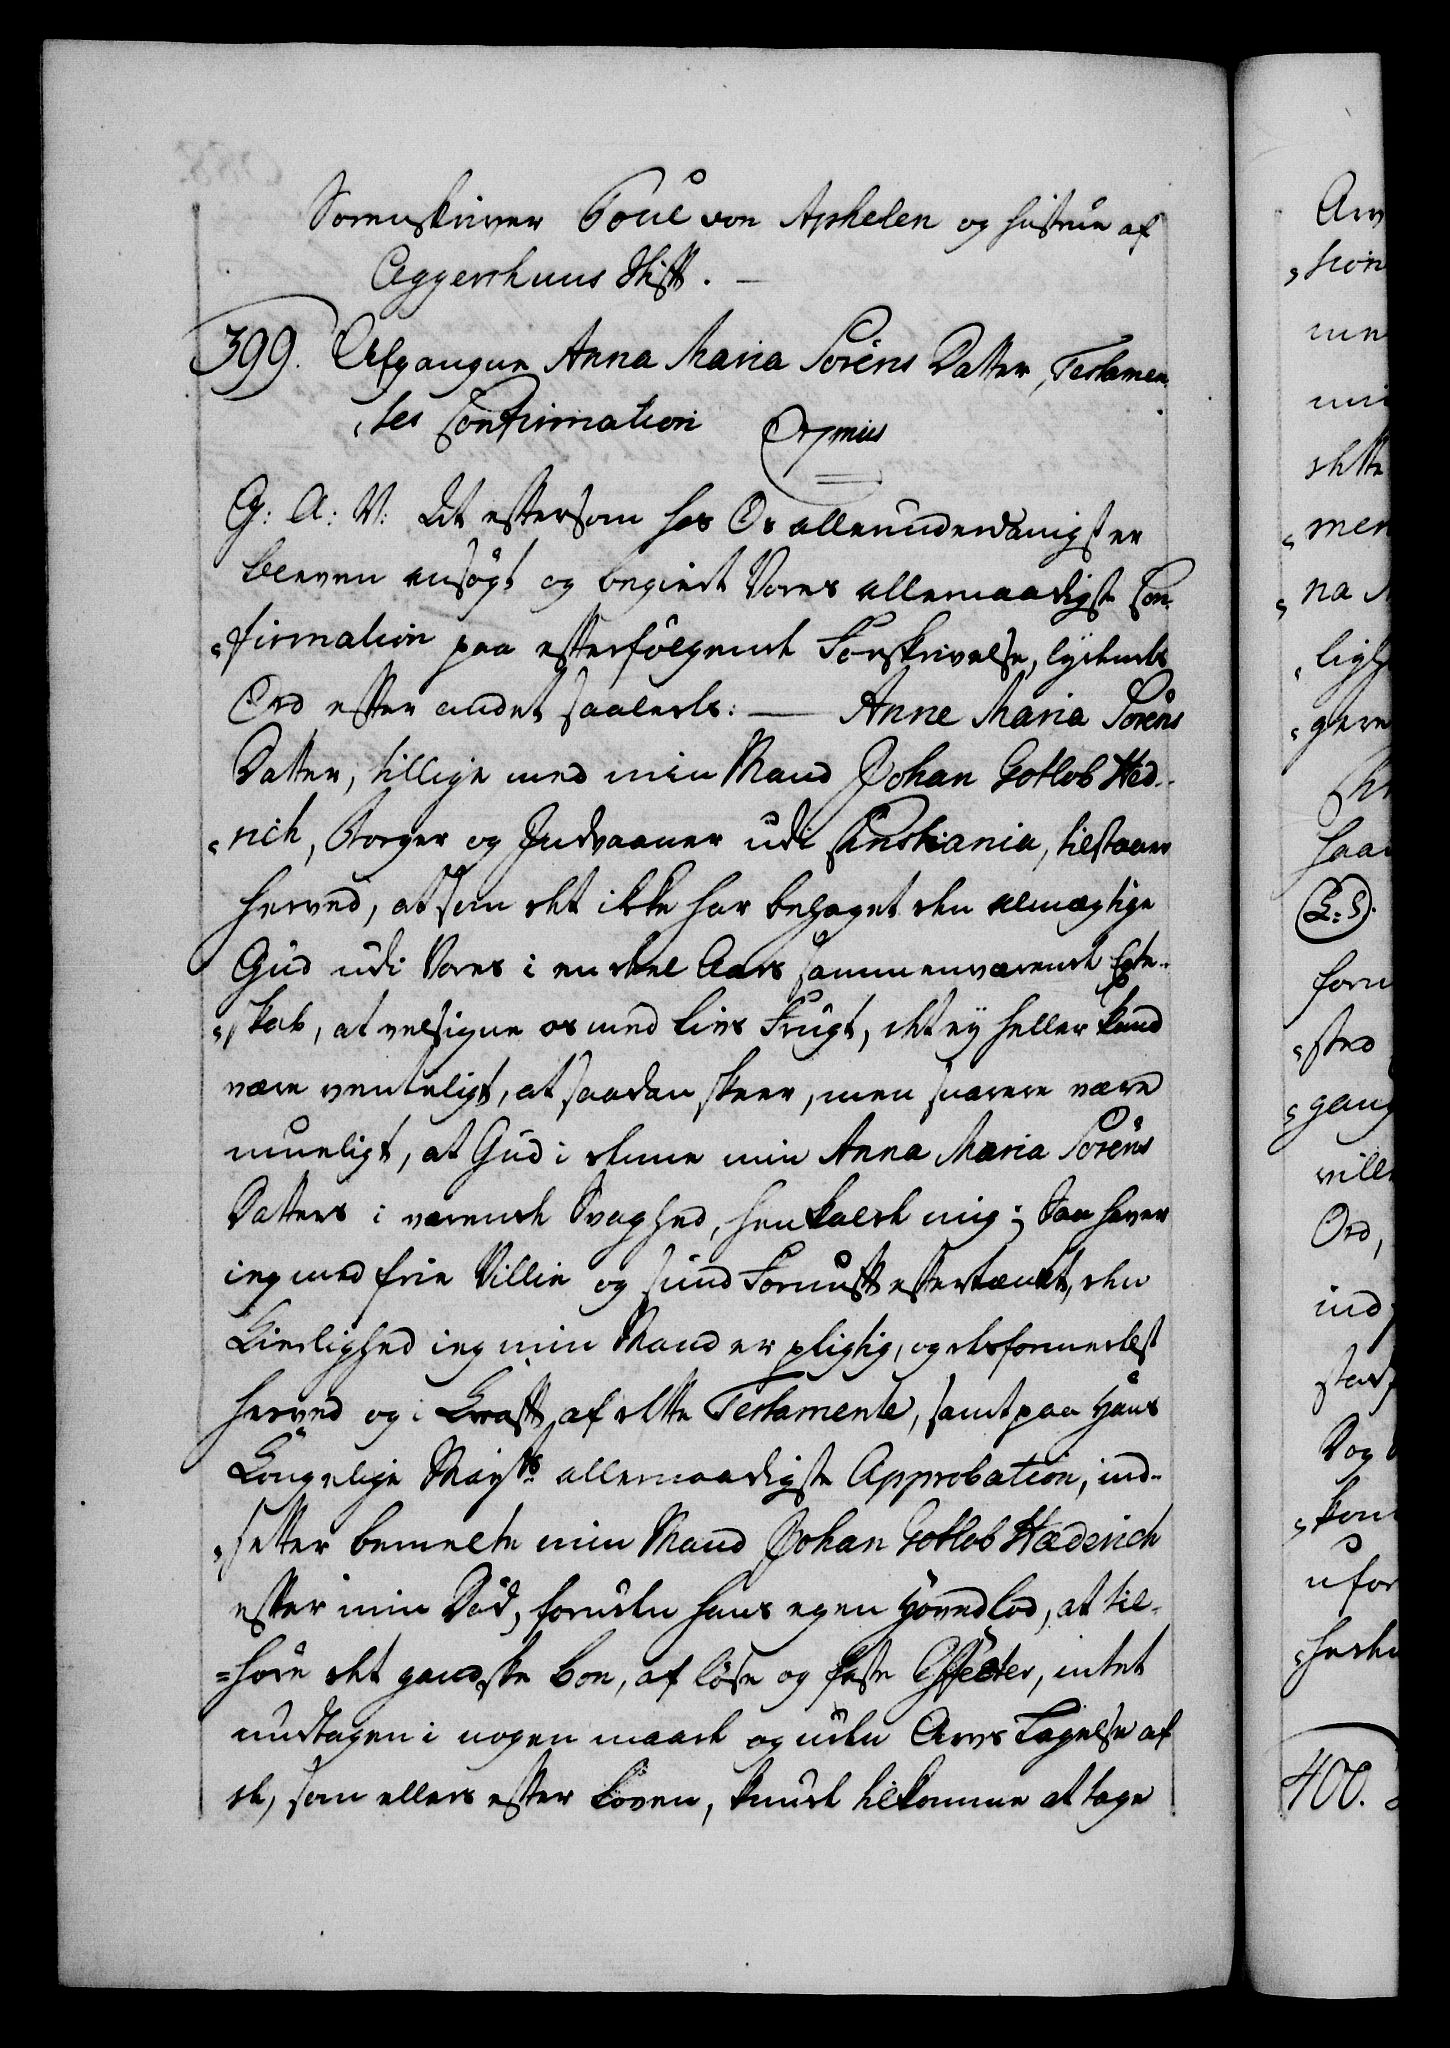 Sorenskriver Poul von Aphelen og Hustrue af
Aggershuus Stift. —
399. Afgangne Anna Maria Sörens Datter, Testamen-
„tes Confirmation Gratis
G: A: V: At eftersom hos Os allerunderdanigst er
bleven ansögt og begiert Vores allernaadigste Con-
„firmation paa efterfölgende Forskrivelse, lydende
Ord efter andet saaleds: — Anne Maria Sörens
Datter, tillige med min Mand Johan Gotlob Hed-
„rich, Borger og Indvaaner udi Christiania, tilstaaer
herved, at som det ikke har behaget den almægtige
Gud udi Vores i en deel Aars sammenværende Egte-
„skab, at velsigne os med Livs Frugt, det ey heller kand
være venteligt, at saadan skeer, men snarere være
mueligt, at Gud i denne min Anna Maria Sörens
Datters i værende Svaghed, henkalde mig; Saa haver
ieg med frie Villie og sund Fornuft eftertænkt, den
Kierlighed ieg min Mand er pligtig, og desformedelst
herved og i Kraft af dette Testamente, samt paa Hans
Kongelige Mayts allernaadigste Approbation, ind-
„setter bemelte min Mand Johan Gotlob Hæderich
efter min Död, foruden hans egen Hovedlod, at til-
„höre det gandske Boe, af löse og faste Effecter, intet
undtagen i nogen maade og uden Arvs Tagelse af
de, som ellers efter Loven, kunde tilkomme at tage
Arv
„tion
me
min
dette
„men
na M
„ligh
„gere
haar
(L: S).
forn
„sted
„gang
ville
Ord,
ind
Dog
„kom
ufor
400.